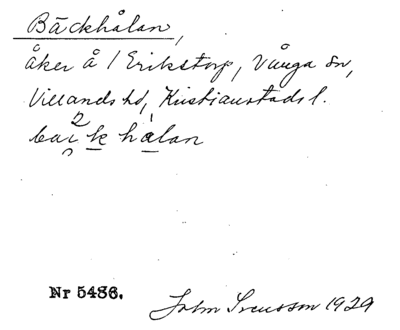 Bäckhålan,
åker å / Erikstorp, Vånga sn,
Villands hd, Kristianstads l.
bai k hålan
Nr 5486.
John Svensson 1929